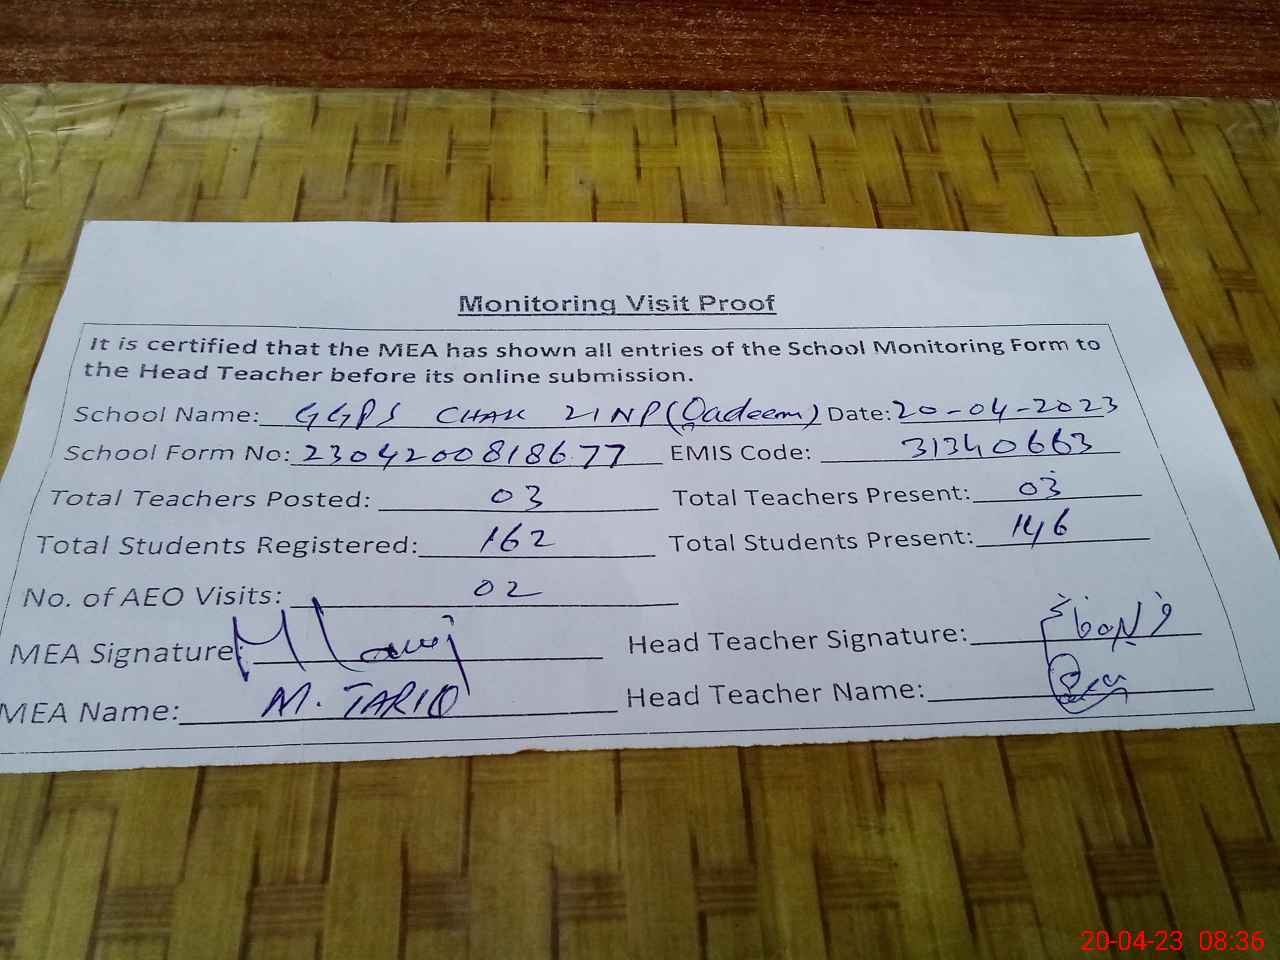 Monitoring Visit Proof
It is certified that the MEA has shown all entries of the School Monitoring Form to
the Head Teacher before its online submission.
School Name: GGPS CHAK 21NP(Qadeem) Date: 20-04-2023
School Form No: 2304200818677 EMIS Code: 31340663
Total Teachers Posted: 03 Total Teachers Present: 03
Total Students Registered: 162 Total Students Present: 146
No. of AEO Visits: 02
MEA Signature: Head Teacher Signature:
MEA Name: M. TARIQ Head Teacher Name:
20-04-23 08:36